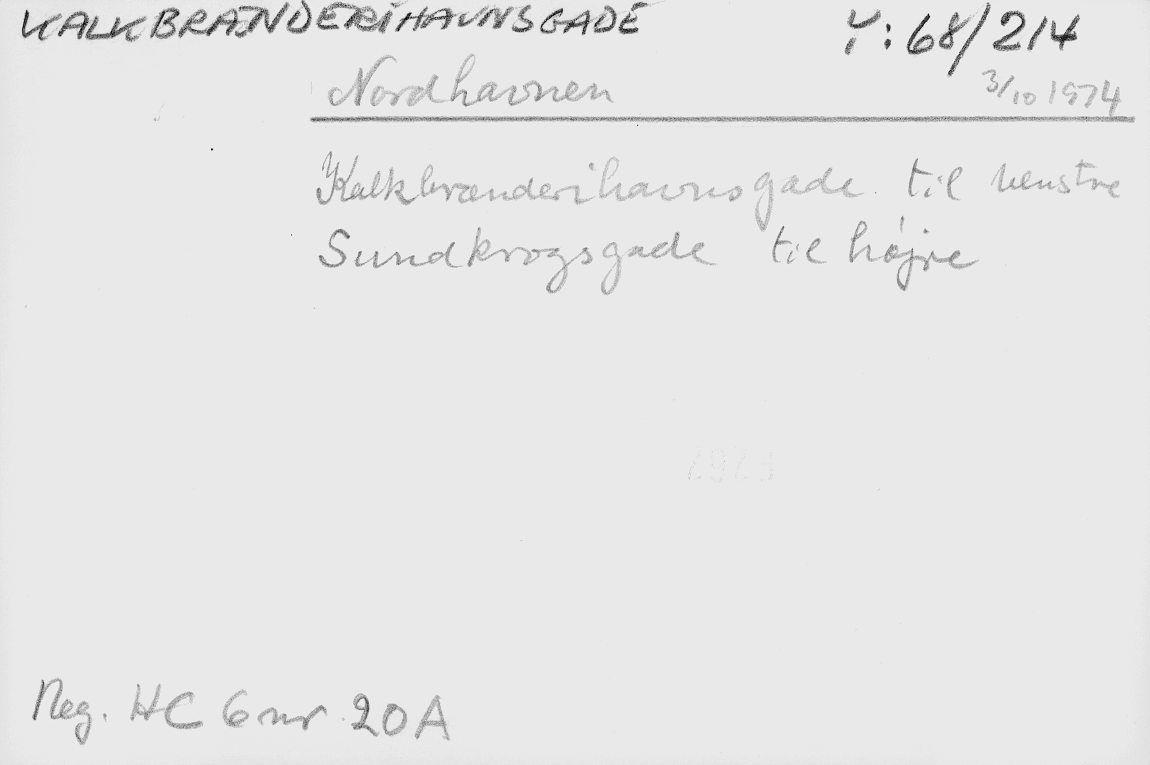 KALKBRÆNDERIHAVNSGADE Y: 68/214
Nordhavnen 3/10 1974
Kalkbrænderihavnsgade til venstre
Sundkrogsgade til højre
Neg. HC 6 nr 20A